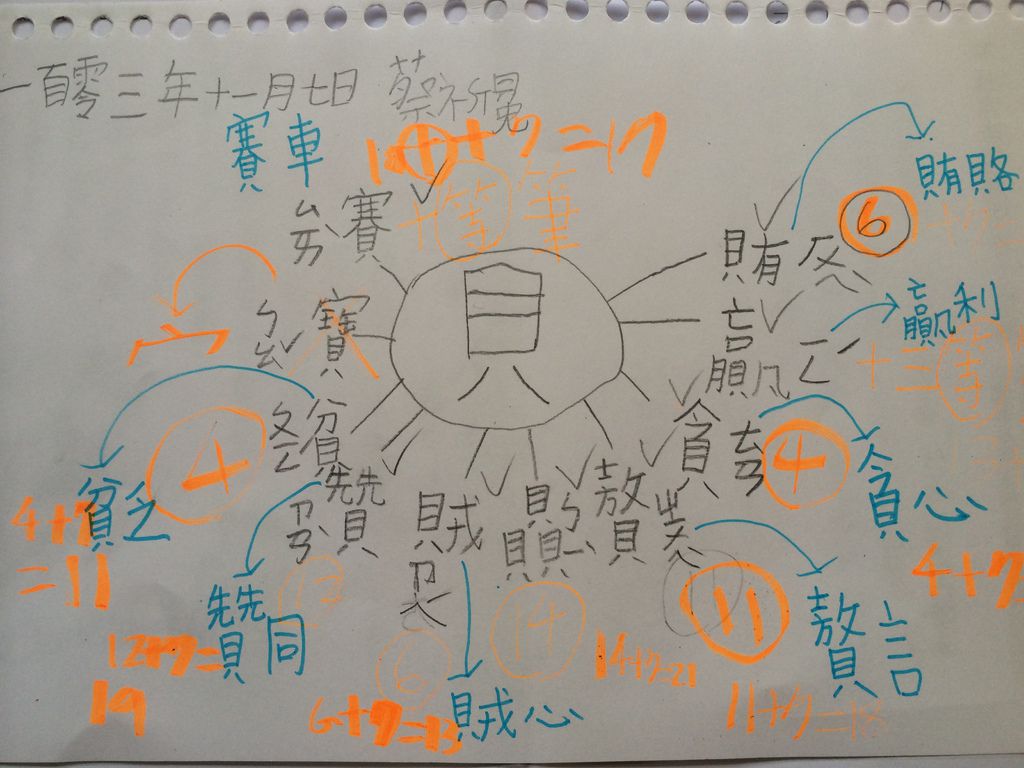 一百零三年十一月七日 蔡
賽車
10+7=17
賽 ㄙㄞˋ
筆
賄賂
賄 ㄏㄨㄟˋ
6
貝
寶 ㄅㄠˇ
宀
贏 ㄧㄥˊ
贏利
貧 ㄆㄧㄣˊ
4
貪 ㄊㄢ
4
貧乏
4+7
=11
貪心
4+7
贊 ㄗㄢˋ
賊 ㄗㄟˊ
贅 ㄓㄨㄟˋ
12
14
11
贊同
12+7=
19
6
14+7=21
贅言
11+7=18
6+7=13
賊心